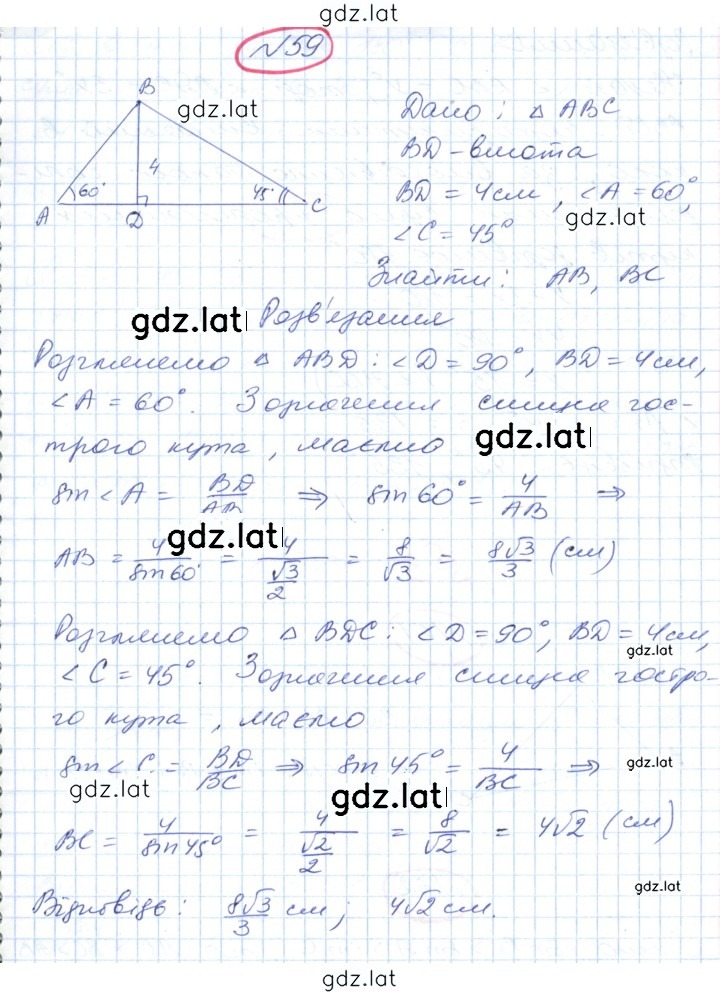 gdz.lat
№59
B
gdz.lat
4
60°
45°
A
D
C
Дано: △ ABC
BD - висота
BD = 4 см, ∠A = 60°,
gdz.lat
∠C = 45°
Знайти: AB, BC
gdz.lat Розв'язання
Розглянемо △ ABD: ∠D = 90°, BD = 4 см,
∠A = 60°. З означення синуса гос-
трого кута, маємо gdz.lat
sin∠A = BD/AB ⇒ sin 60° = 4/AB ⇒
gdz.lat
AB = 4/sin60° = 4/(√3/2) = 8/√3 = 8√3/3 (см)
Розглянемо △ BDC: ∠D = 90°, BD = 4 см,
gdz.lat
∠C = 45°. З означення синуса гостро-
го кута, маємо
sin∠C = BD/BC ⇒ sin 45° = 4/BC ⇒ gdz.lat
gdz.lat gdz.lat
BC = 4/sin45° = 4/(√2/2) = 8/√2 = 4√2 (см)
gdz.lat
Відповідь: 8√3/3 см; 4√2 см.
gdz.lat